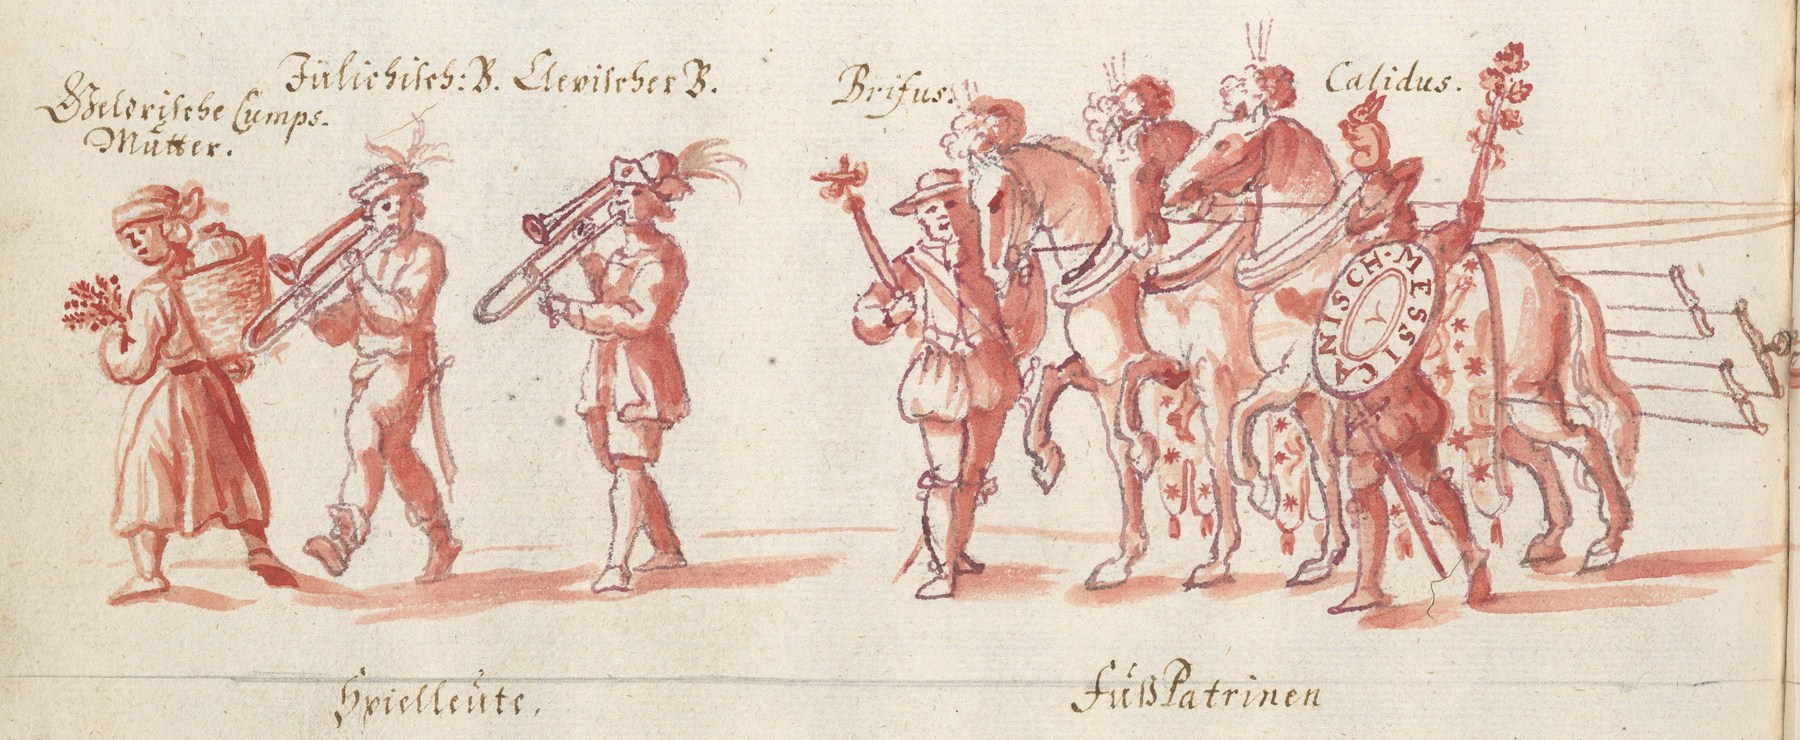 Geldrische Lumps-
Mutter.
Jülichisch: B. Clevischer B.
Brisus.
Calidus.
CANISCH · MESSSI
Spielleüte.
FüßPatrinen